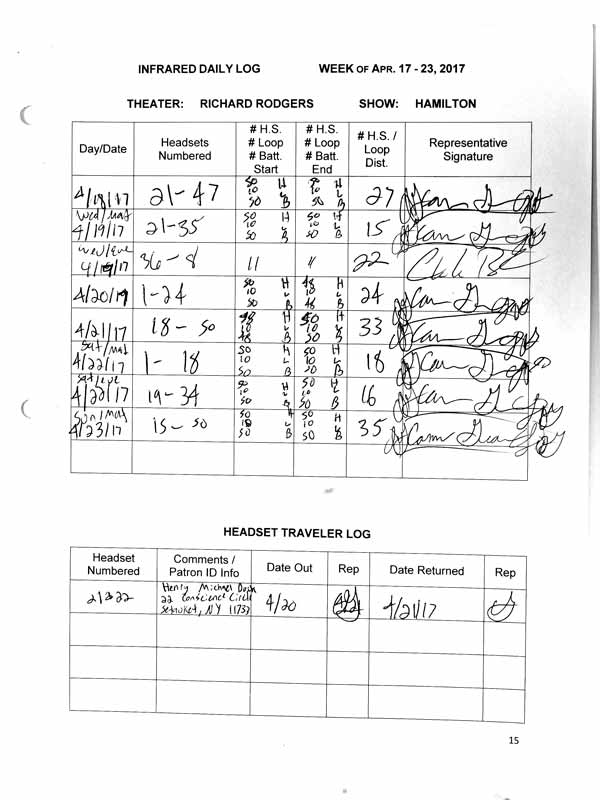 INFRARED DAILY LOG WEEK OF APR. 17 - 23, 2017
THEATER: RICHARD RODGERS SHOW: HAMILTON
Day/Date
Headsets
Numbered
# H.S.
# Loop
# Batt.
Start
# H.S.
# Loop
# Batt.
End
# H.S. /
Loop
Dist.
Representative
Signature
4/18/17 21-47
50 H
10 L
50 B
50 H
10 L
50 B
27
Wed/Mat
4/19/17 21-35
50 H
10 L
50 B
50 H
10 L
50 B
15
Wed/Eve
4/19/17 36-8 11 11 22
4/20/19 1-24
50 H
10 L
50 B
48 H
10 L
48 B
24
4/21/17 18-50
48 H
10 L
48 B
50 H
10 L
50 B
33
Sat/Mat
4/22/17 1-18
50 H
10 L
50 B
50 H
10 L
50 B
18
Sat/Eve
4/22/17 19-34
50 H
10 L
50 B
50 H
10 L
50 B
16
Sun/Mat
4/23/17 15-50
50 H
10 L
50 B
50 H
10 L
50 B
35
HEADSET TRAVELER LOG
Headset
Numbered
Comments /
Patron ID Info
Date Out
Rep
Date Returned
Rep
Henry Michael
22 Conscience Circle
Setauket, NY 11733
4/20 4/21/17
15